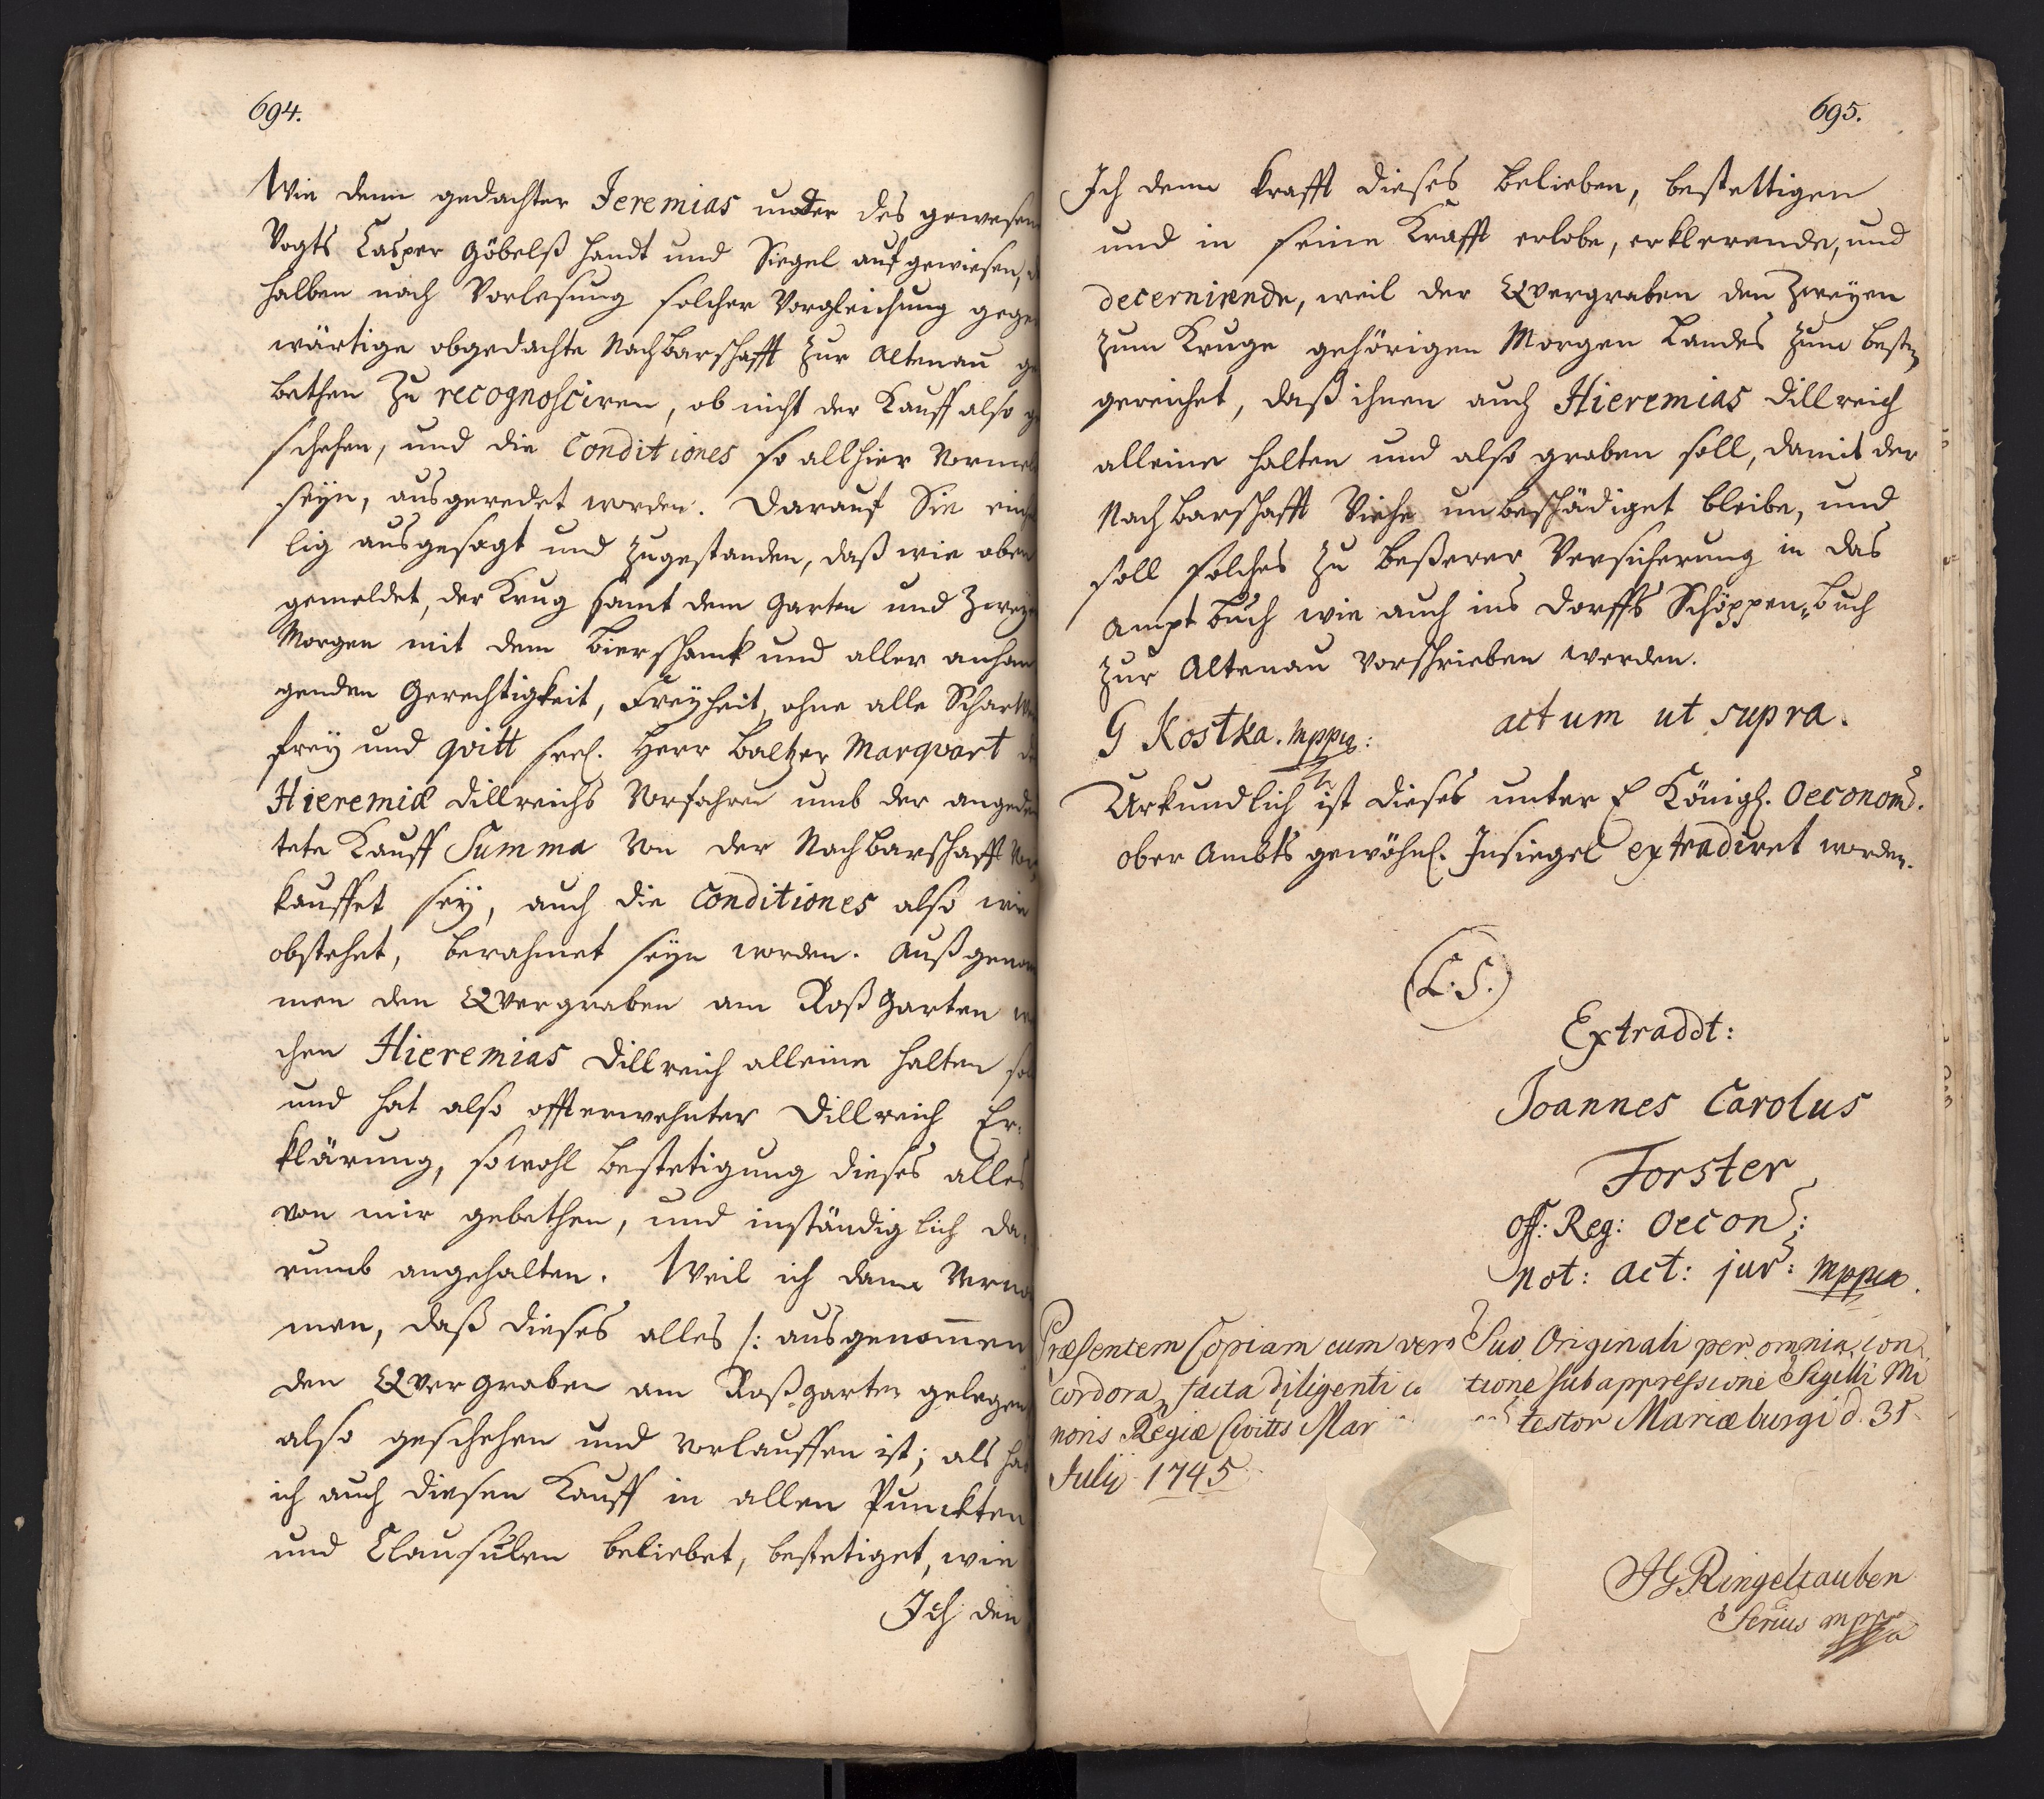 694.
Wie denn gedachter Jeremias unter des gewesen
Vogts Casper Göbelß Handt und Siegel aufgewiesen,
halben nach Vorlesung solcher Vorgleichung gege
wärtige obgedachte Nachbarschafft zur Altenau ge
bethen zu recognosciren, ob nicht der Kauff also ge
schehen, und die Conditiones so allhier Vormel
seyn, ausgeredet worden. Darauf Sie einhe
lig ausgesagt und zugestanden, daß wie oben
gemeldet, der Krug samt dem Garten und Zweyen
Morgen mit dem Bierschank und aller anhan
genden Gerechtigkeit, Freyheit, ohne alle Scharwe
frey und qvitt seel. Herr Baltzer Marqvart de
Hieremiæ Dillreichs Vorfahren umb der angedeu
tete Kauff Summa von der Nachbarschafft Vor
kauffet sey, auch die Conditiones also wie
obstehet, berahmet seyn worden. Außgenom
men den Qvergraben am Roßgarten we
chen Hieremias Dillreich alleine halten sol
und hat also offterwehnter Dillreich Er-
klärung, sowohl Bestetigung dieses alles
von mir gebethen, und inständiglich da-
rumb angehalten. Weil ich dann Verno
men, daß dieses alles /: ausgenom̄en
den Qvergraben am Roßgarten gelegen
also geschehen und vorlauffen ist; als ha
ich auch diesen Kauff in allen Punckten
und Clausulen beliebet, bestetiget, wie
Ich den
695.
Ich denn krafft dieses belieben, bestettigen
und in seine Krafft erlobe, erklerende, und
decernirende, weil der Qvergraben den Zweyen
zum Kruge gehörigen Morgen Landes zum besten
gereichet, daß ihnen auch Hieremias Dillreich
alleine halten und also graben soll, damit der
Nachbarschafft Viehe unbeschädiget bleibe, und
soll solches zu beßerer Versicherung in das
Ampt Buch wie auch ins Dorffs Schöppen-Buch
zur Altenau Vorschrieben werden.
G Kostka. mppia: actum ut supra.
Urkundlich ist dieses unter E Königl. Oeconom.
Ober Ambts gewöhnl. Insiegel extradiret worden.
(L.S.)
Extraddt:
Joannes Carolus
Forster
Off: Reg: Oecon:
Not: Act: jur: mppia.
Præsentem Copiam cum vero Suo Originali per omnia con
cordora, facta diligenti co tione sub appressione Sigilli Mi
noris Regiæ Civittis Mar testor Mariæburgi d. 31
Julij 1745
JG Ringeltauben
Secrius mppia